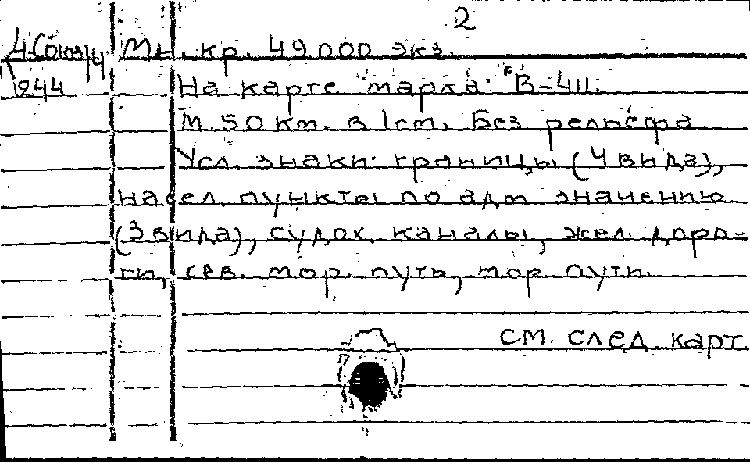 2
Мн. кр. 49000 экз.
944 На карте марка: "В-411.
М. 50 км. в 1 см. Без рельефа
Усл. знаки: границы (4 вида),
насел. пункты по адм значению
(3 вида), судох. каналы, жел. доро-
ги, сев. мор. путь, мор. пути.
см. след. карт